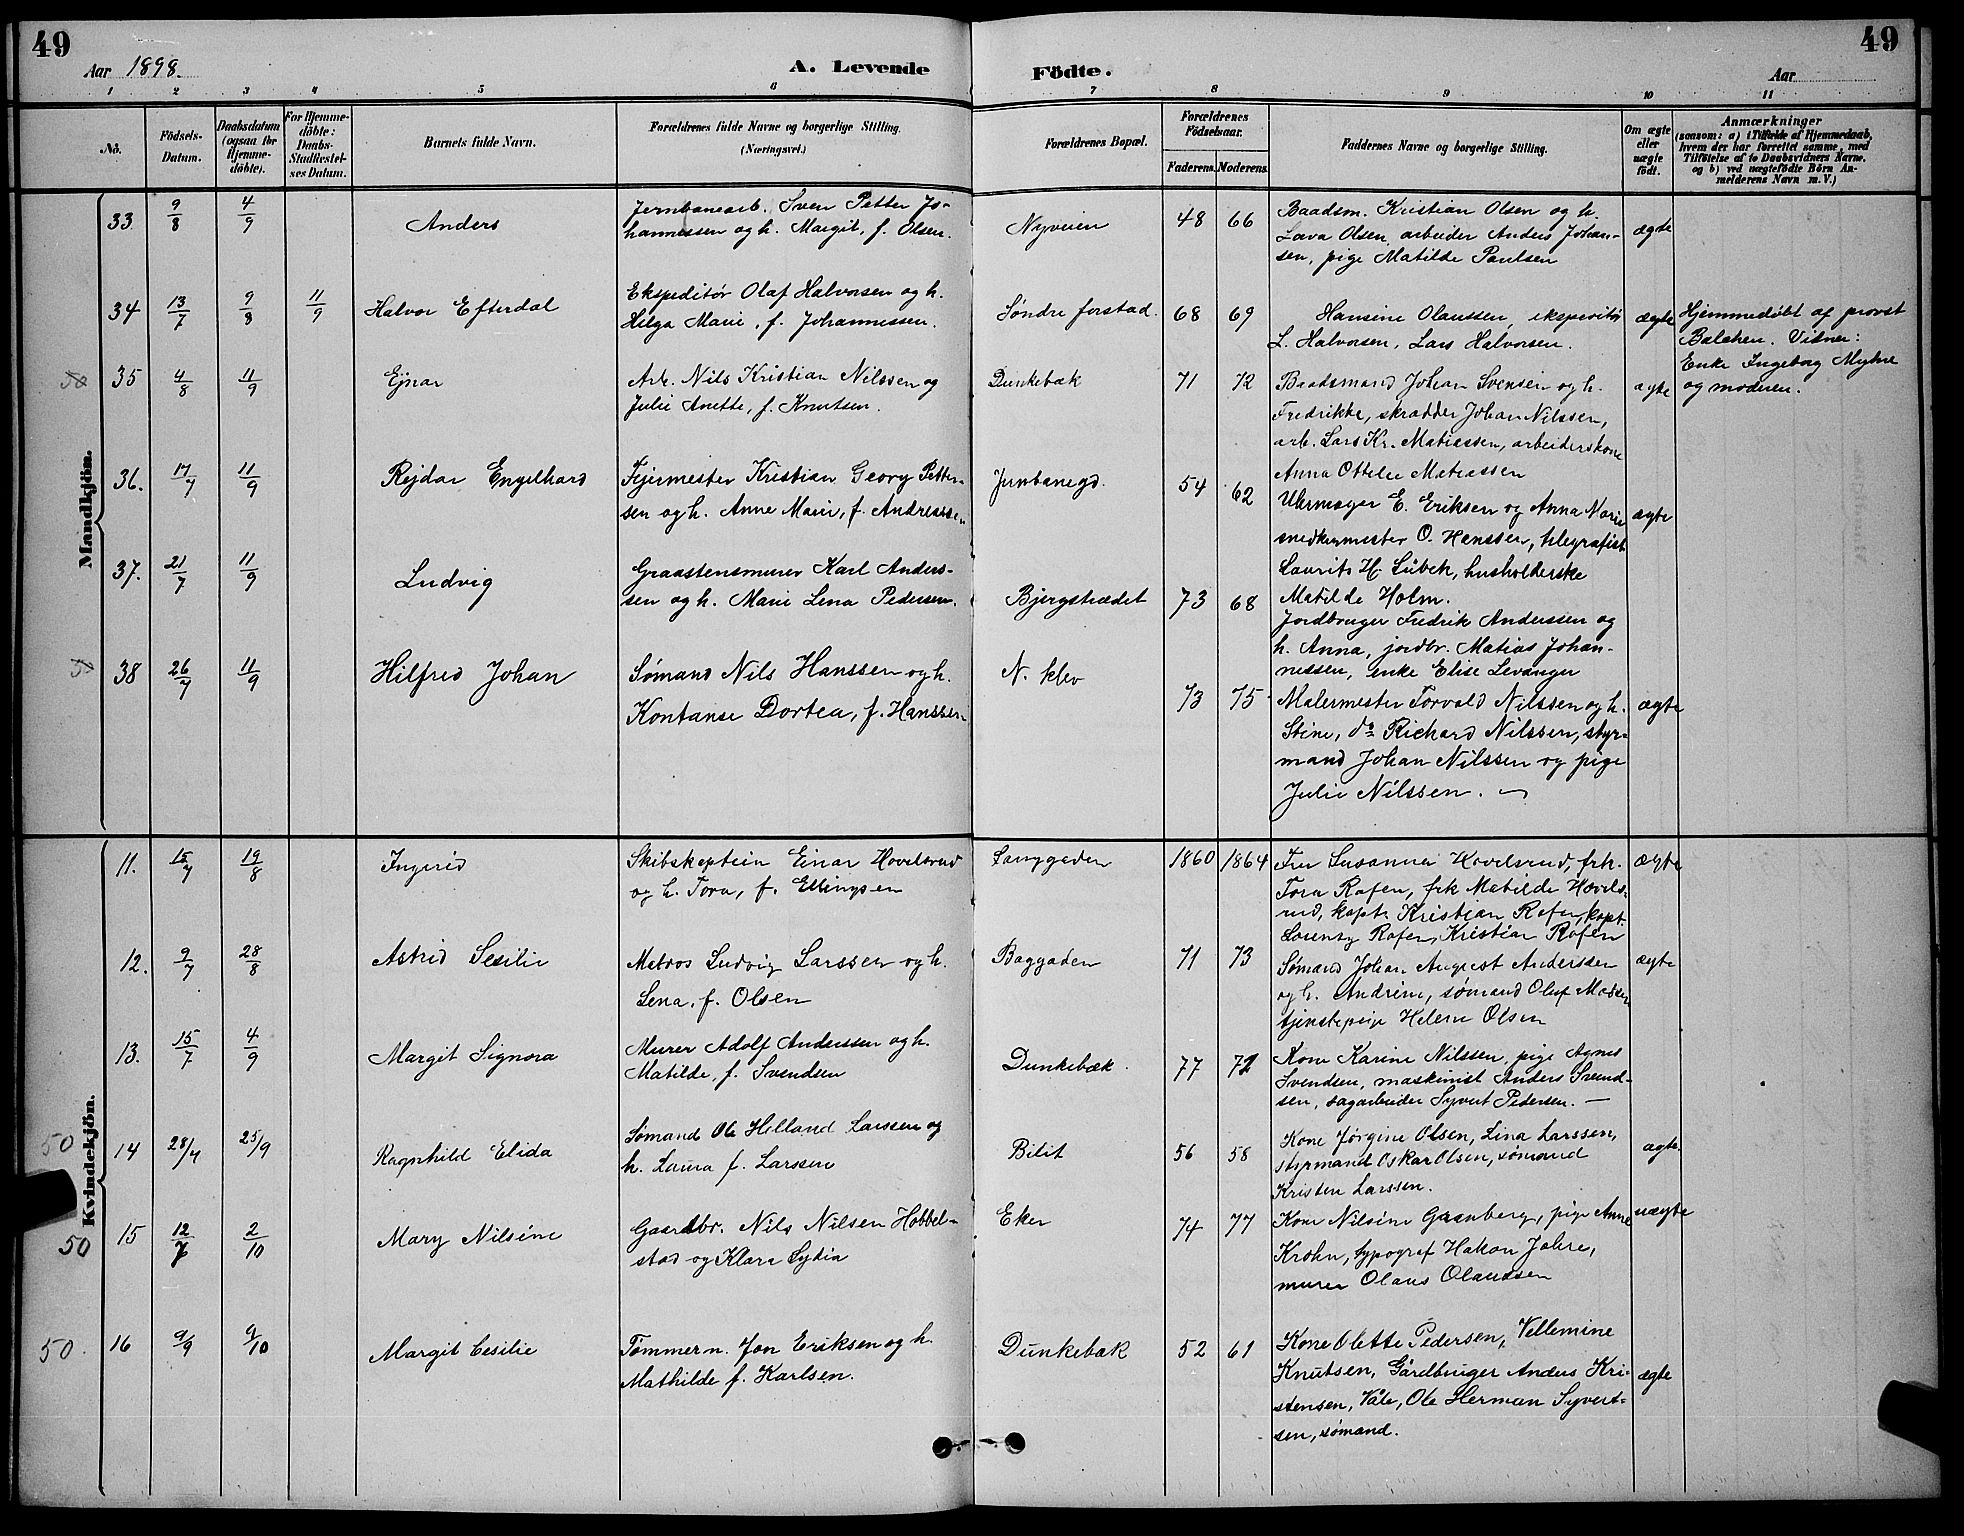 49
Aar 1898.
A. Levende Födte.
Aar
49
1 2 3 4 5 6 7 8 9 10 11
No.
Födsels-Datum.
Daabsdatum (ogsaa for Hjemme-döbte).
For Hjemme-döbte: Daabs-Stadfæstel-ses Datum.
Barnets fulde Navn.
Forældrenes fulde Navne og borgerlige Stilling. (Næringsvei.)
Forældrenes Bopæl.
Forældrenes Födselsaar.
Faderens. Moderens.
Faddernes Navne og borgerlige Stilling.
Om ægte eller uægte födt.
Anmærkninger
(saasom: a) i Tilfælde af Hjemmedaab, hvem der har forrettet samme, med Tilföielse af to Daabsvidners Navne, og b) ved uægtefödte Börn An-melderens Navn m. V.)
Mandkjön.
33 9/8 4/9 Anders
Jernbanearb. Sven Petter Jo-
hannessen og h. Margit, f. Olsen.
Nyveien 48 66
Baadsm. Kristian Olsen og h.
Lava Olsen, arbeider Anders Johan-
sen, pige Matilde Paulsen
ægte
34 13/7 9/8 11/9 Halvor Efterdal
Ekspeditør Olaf Halvorsen og h.
Helga Marie, f. Johannessen.
Søndre forstad. 68 69
Hansine Olaussen, ekspeditør
L. Halvorsen, Lars Halvorsen.
ægte
Hjemmedøbt af provst
Balchen. Vidner:
Enke Ingeborg Myhre
og moderen.
50 35 4/8 11/9 Ejnar
Arb. Nils Kristian Nilssen og
Julie Anette, f. Knutsen.
Dunkebæk 71 72
Baadsmand Johan Svensen og h.
Fredrikke, skrædder Johan Nilssen,
arb. Lars Kr. Matiassen, arbeiderskone
Anna Ottelie Matiassen
ægte
36. 17/7 11/9 Rejdar Engelhard
Fejermester Kristian Georg Petter-
sen og h. Anne Marie, f. Andreassen
Jernbanegd. 54 62
Uhrmager E. Eriksen og Anna Marie
snedkermester O. Hanssen, telegrafist
Laurits H. Lübek, husholderske
Matilde Holm.
ægte
37. 21/7 11/9 Ludvig
Graastensmurer Karl Anders-
sen og h. Marie Lena Pedersen.
Bjergstrædet 73 68
Jordbruger Fredrik Anderssen og
h. Anna, jordbr. Matias Johan-
nessen, enke Elise Levanger
50 38 26/7 11/9 Hilfred Johan
Sømand Nils Hanssen og h.
Kontanse Dortea, f. Hanssen
N. klev 73 75
Malermester Torvald Nilssen og h.
Stine, do Richard Nilssen, styr-
mand Johan Nilssen og pige
Julie Nilssen.
ægte
Kvindekjön.
11. 15/7 19/8 Ingerid
Skibskaptein Einar Hovelsrud
og h. Tora, f. Ellingsen
Langgaden 1860 1864
Fru Susanna Hovelsrud, frk.
Tora Rafen, frk Matilde Hovels-
rud, kapt. Kristian Rafen, kapt.
Lorentz Rafen, Kristian Rafen
ægte
12. 9/7 28/8 Astrid Sesilie
Matros Ludvig Larssen og h.
Lena, f. Olsen
Baggaden 71 73
Sømand Johan August Anderssen
og h. Andrine, sømand Oluf Madsen
tjenstepige Helene Olsen
ægte
13. 15/7 4/9 Margit Signora
Murer Adolf Anderssen og h.
Matilde, f. Svendsen
Dunkebæk. 77 72
Kone Karine Nilssen, pige Agnes
Svendsen, maskinist Anders Svend-
sen, sagarbeider Syvert Pedersen.
50 14 28/7 25/9 Ragnhild Elida
Sømand Ole Helland Larssen og
h. Laura f. Larssen
Bilit 56 58
Kone Jørgine Olsen, Lina Larssen,
styrmand Oskar Olsen, sømand
Kristen Larssen.
ægte.
50 15 12/7 2/10 Mary Nilsine
Gaardbr. Nils Nilsen Hobbel-
stad og Klara Lydia
Eker 74 77
Kone Nilsine Grønberg, pige Anne
Krohn, typograf Hakon Jahre,
murer Olaus Olaussen
uægte
50. 16 9/9 9/10 Margit Cesilie
Tømmerm. Jon Eriksen og h.
Mathilde f. Karlsen.
Dunkebæk 52 61
Kone Olette Pedersen, Vellemine
Knutsen, Gårdbruger Anders Kri-
stensen, Våle, Ole Herman Syvert-
sen, sømand.
ægte